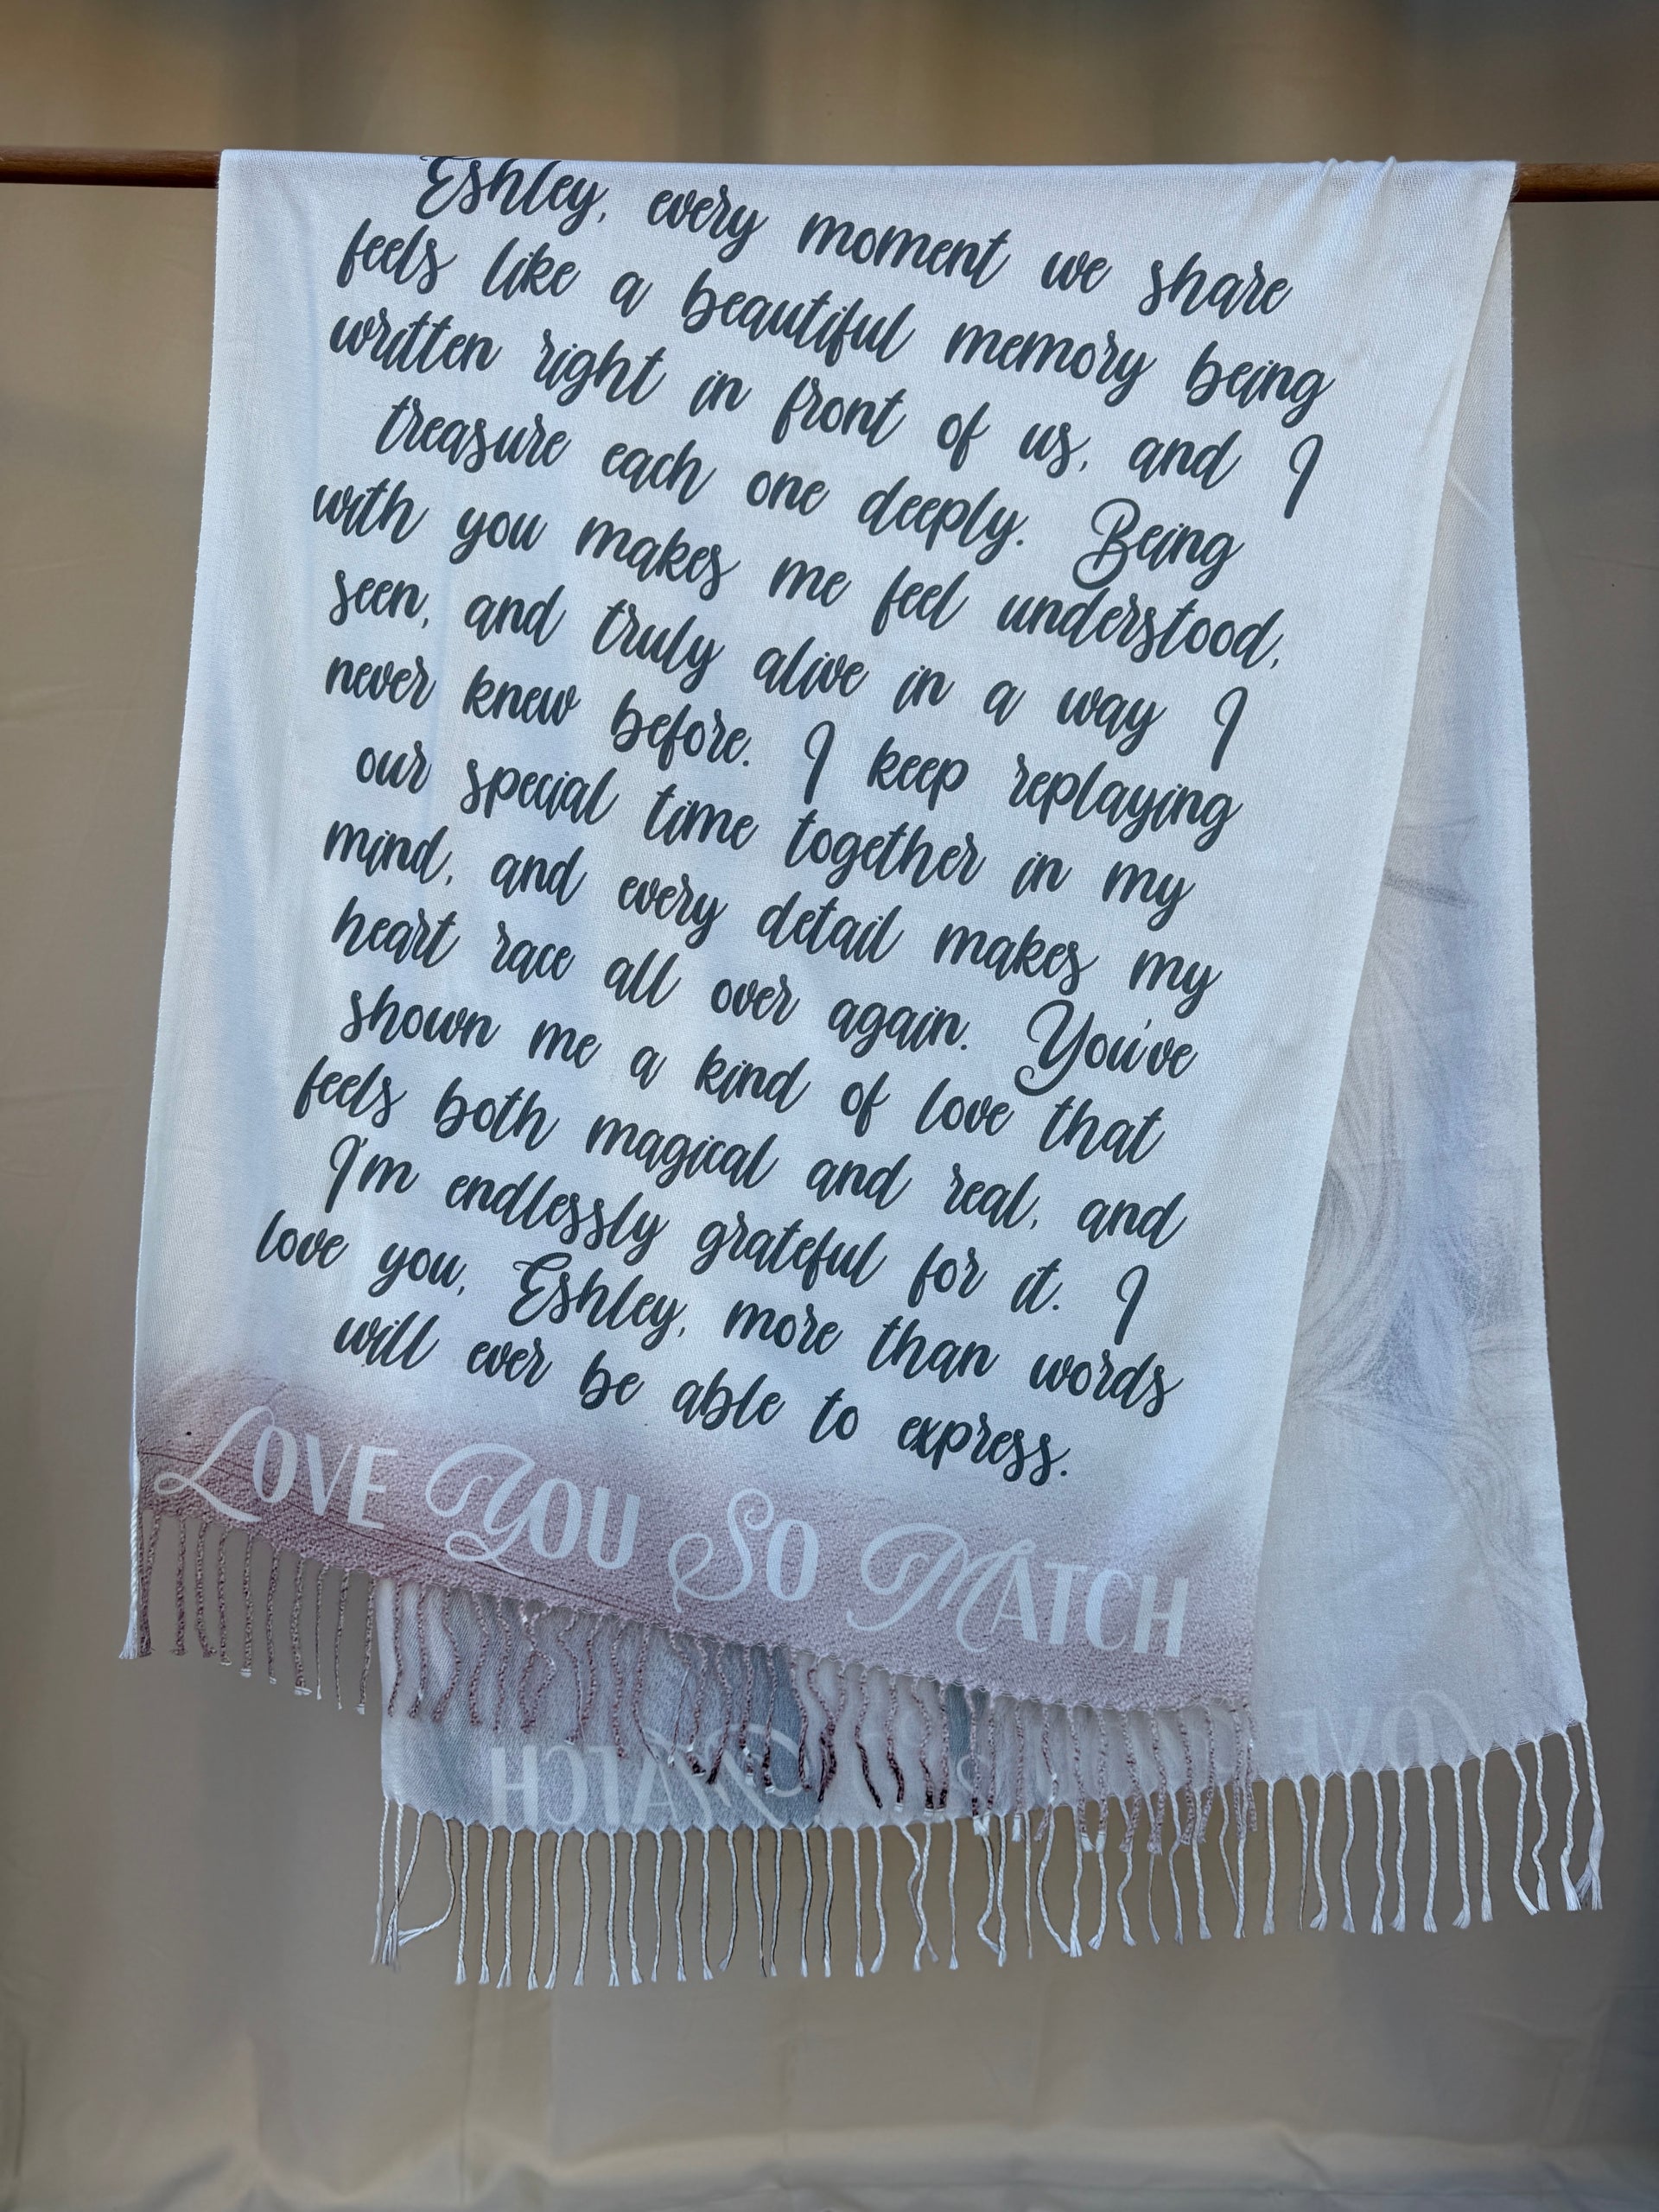 Eshley, every moment we share
feels like a beautiful memory being
written right in front of us, and I
treasure each one deeply. Being
with you makes me feel understood,
seen, and truly alive in a way I
never knew before. I keep replaying
our special time together in my
mind, and every detail makes my
heart race all over again. You've
shown me a kind of love that
feels both magical and real, and
I'm endlessly grateful for it. I
love you, Eshley, more than words
will ever be able to express.
LOVE YOU SO MATCH
LOVE S MATCH